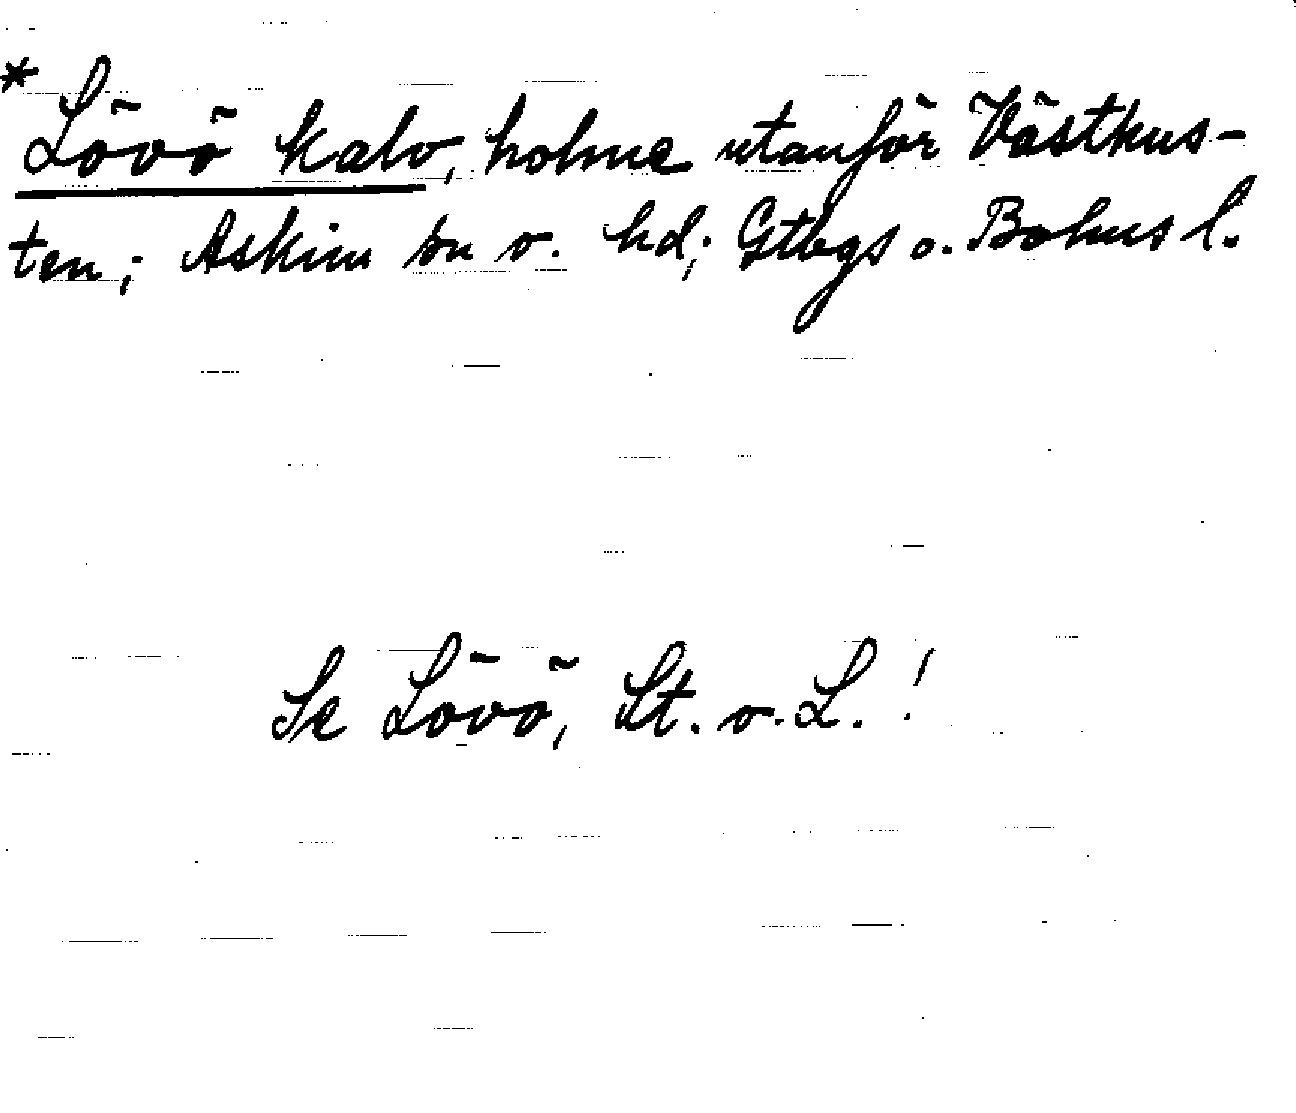 *Lövö kalv, holme utanför Västkus-
ten; Askim sn o. hd; Gtbgs o. Bohus l.
Se Lövö, St. o. L.!